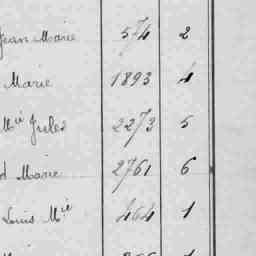 Jean Marie 574 2
Marie 1893 4
Mie Jules 2273 5
d Marie 2761 6
Louis Mie 464 1